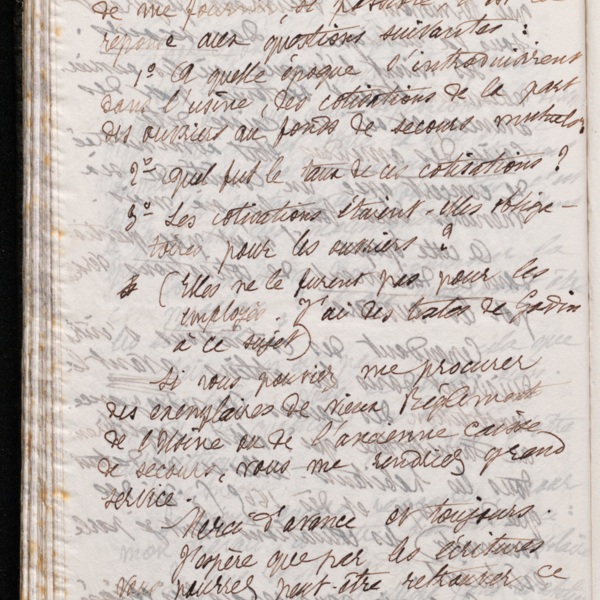 de me fournir si possible
réponse aux questions suivantes :
1º A quelle époque s'introduisirent
dans l'usine, des cotisations de la part
des ouvriers au fonds de secours mutuels,
2º quel fut le taux de ces cotisations ?
3º Les cotisations étaient-elles obliga-
toires pour les ouvriers ?
(Elles ne le furent pas pour les
employés. J'ai des textes de Godin
à ce sujet)
Si vous pouviez me procurer
des exemplaires de vieux Règlements
de l'Usine ou de l'ancienne caisse
de secours, vous me rendriez grand
service.
Merci d'avance et toujours.
J'espère que par les écritures
vous pourrez peut-être retrouver ce